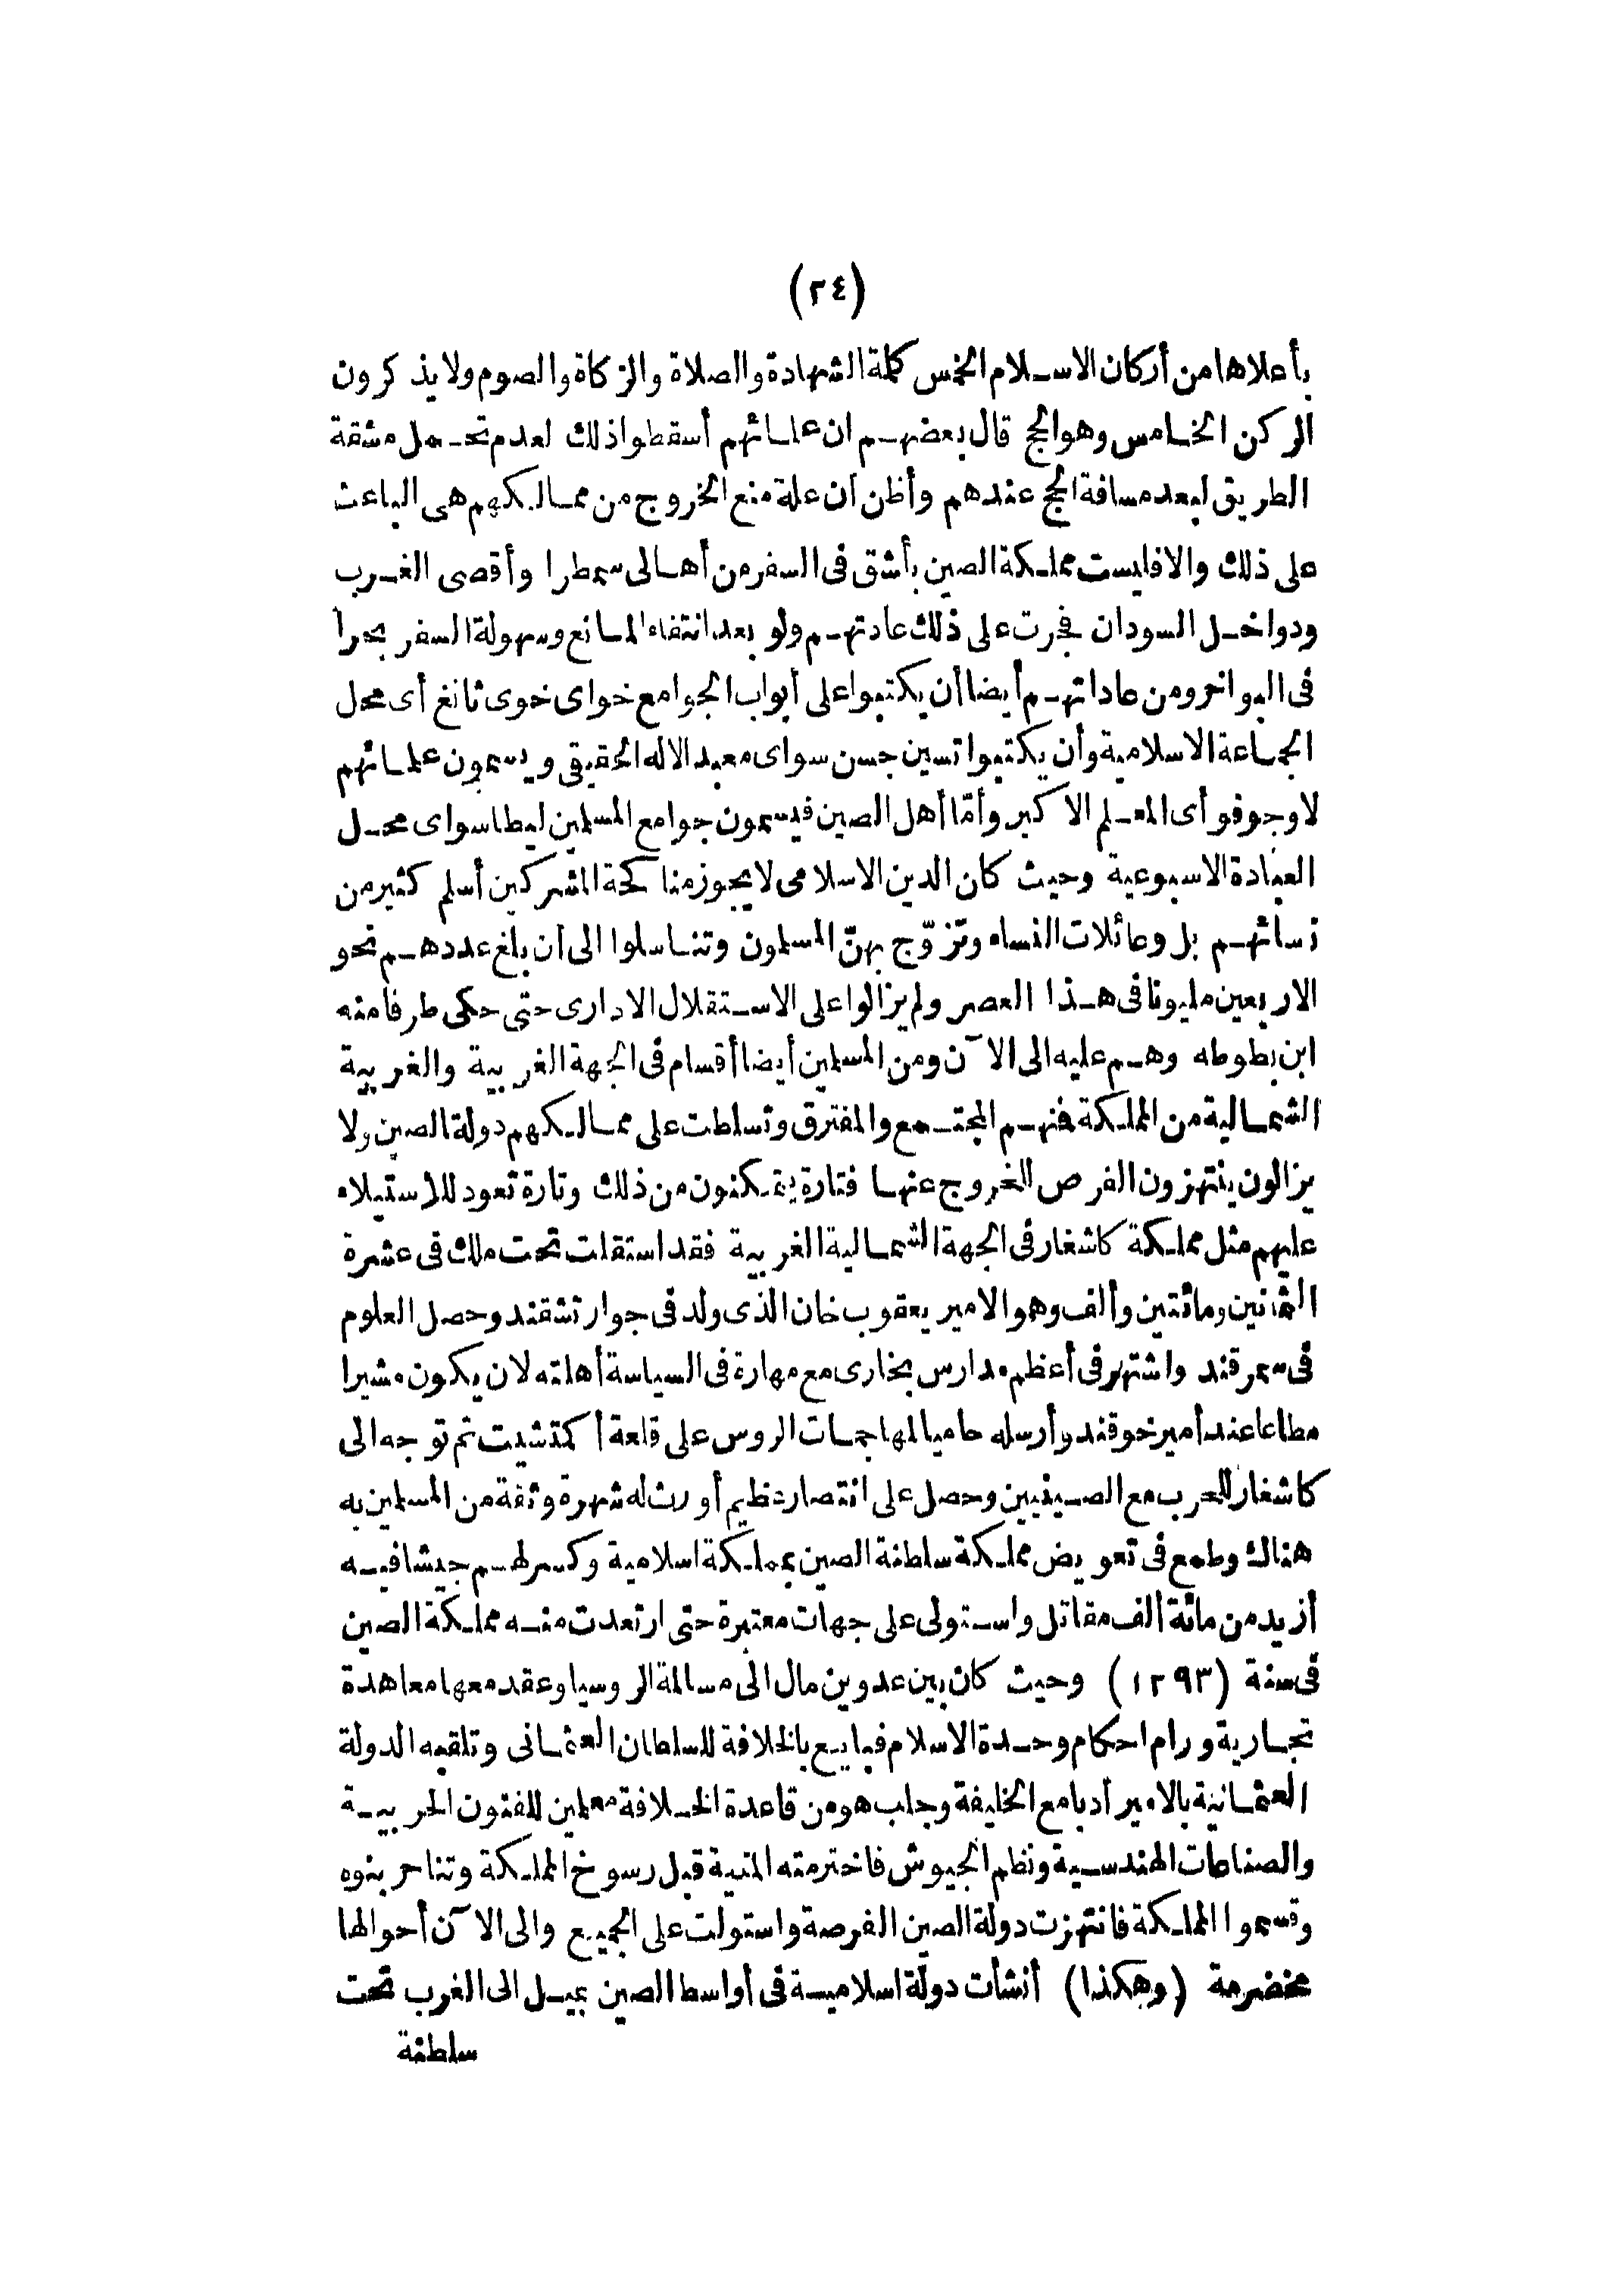 (٢٤)
بأعلاها من أركان الاسلام الخمس كلمة الشهادة والصلاة والزكاة والصوم ولا يذكرون
الركن الخامس وهو الحج قال بعضهم ان علمائهم أسقطوا ذلك لعدم تحمل مشقة
الطريق لبعد مسافة الحج عندهم وأظن ان علة منع الخروج من ممالكهم هى الباعث
على ذلك والا فليست مملكة الصين بأشق فى السفر من أهالى سمطرا وأقصى الغرب
ودواخل السودان فجرت على ذلك عادتهم ولو بعد انتفاء المانع وسهولة السفر بحرا
فى البواخر ومن عاداتهم أيضا أن يكتبوا على أبواب الجوامع خواى خوى ثانغ أى محل
الجماعة الاسلامية وأن يكتبوا تسين جسن سواى معبد الاله الحقيقى ويسمون علمائهم
لاوجوفو أى المعلم الاكبر وأمّا أهل الصين فيسمون جوامع المسلمين ليطاسواى محل
العبادة الاسبوعية وحيث كان الدين الاسلامى لا يجوز مناكحة المشركين أسلم كثير من
نسائهم بل وعائلات النساء وتزوّج بهنّ المسلمون وتناسلوا الى ان بلغ عددهم نحو
الاربعين مليونا فى هذا العصر ولم يزالوا على الاستقلال الادارى حتى حكى طرفا منه
ابن بطوطه وهم عليه الى الآن ومن المسلمين أيضا أقسام فى الجهة الغربية والغربية
الشمالية من المملكة فمنهم المجتمع والمفترق وتسلطت على ممالكهم دولة الصين ولا
يزالون ينتهزون الفرص للخروج عنها فتارة يتمكنون من ذلك وتارة تعود للاستيلاء
عليهم مثل مملكة كاشغار فى الجهة الشمالية الغربية فقد استقلت تحت ملك فى عشرة
الثمانين ومائتين وألف وهو الامير يعقوب خان الذى ولد فى جوار تشقند وحصل العلوم
فى سمرقند واشتهر فى أعظم مدارس بخارى مع مهارة فى السياسة أهلته لان يكون مشيرا
مطاعا عند أمير خوقند وأرسله حاميا لمهاجمات الروس على قلعة أكمتشيت ثم توجه الى
كاشغار للحرب مع الصينيين وحصل على انتصار عظيم أورث له شهرة وثقة من المسلمين به
هناك وطمع فى تعويض مملكة سلطنة الصين بمملكة اسلامية وكسر لهم جيشا فيه
أزيد من مائة ألف مقاتل واستولى على جهات معتبرة حتى ارتعدت منه مملكة الصين
فى سنة (١٢٩٣) وحيث كان بين عدوين مال الى مسالمة الروسيا وعقد معها معاهدة
تجارية ورام احكام وحدة الاسلام فبايع بالخلافة للسلطان العثمانى وتلقبه الدولة
العثمانية بالامير أدبا مع الخليفة وجلب هو من قاعدة الخلافة معلمين للفنون الحربية
والصناعات الهندسية ونظم الجيوش فاخترمته المنية قبل رسوخ المملكة وتناحر بنوه
وقسموا المملكة فانتهزت دولة الصين الفرصة واستولت على الجميع والى الآن أحوالها
مخضرمة (وهكذا) أنشأت دولة اسلامية فى أواسط الصين بميل الى الغرب تحت
سلطنة